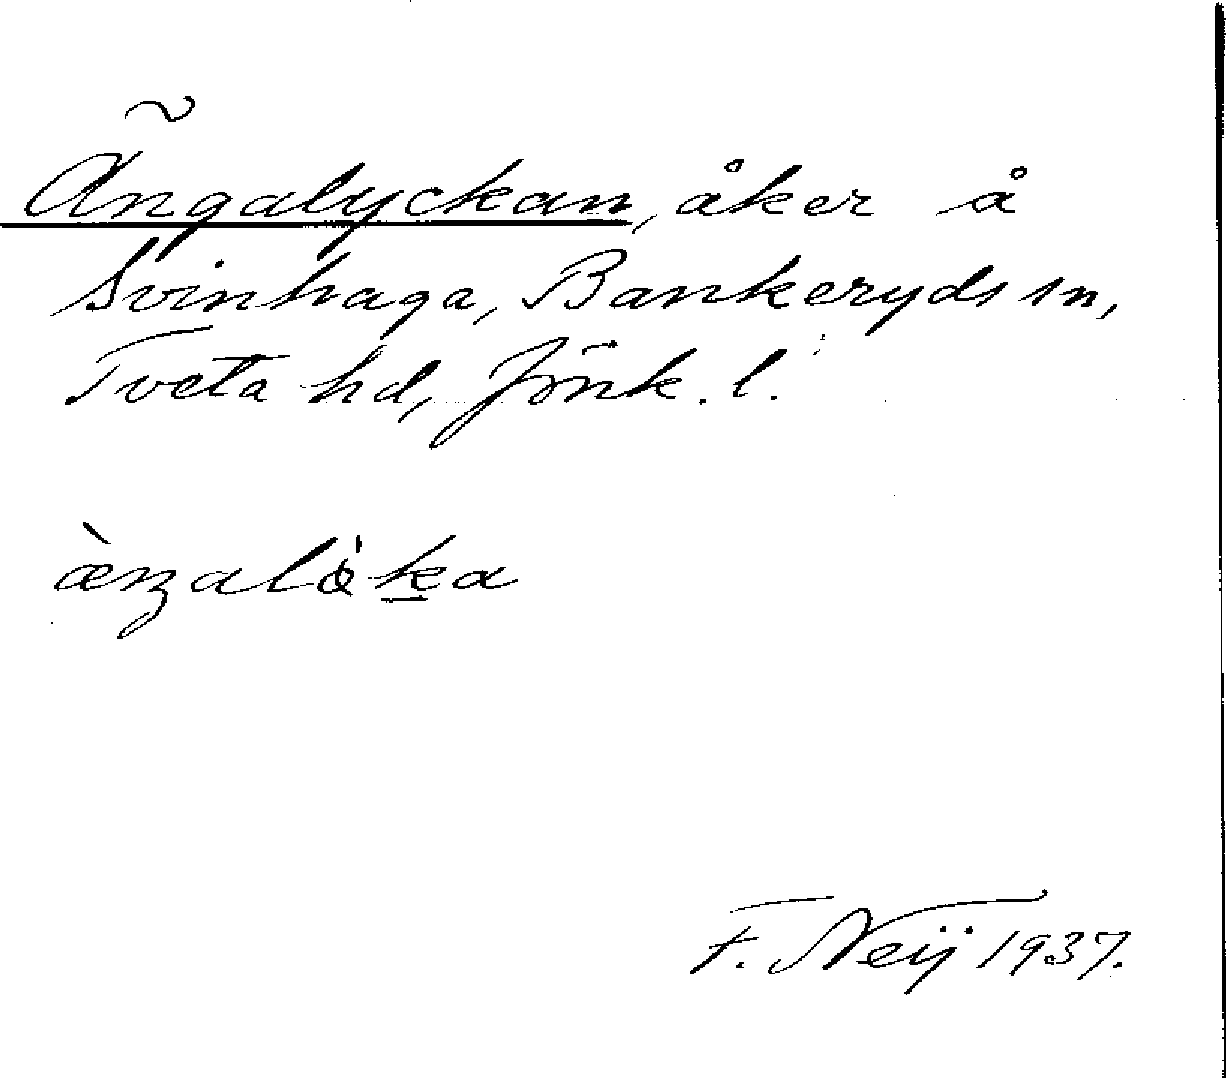 Ängalyckan, åker å
Svinhaga, Bankeryds sn,
Tveta hd, Jönk. l.
F. Neij 1937.